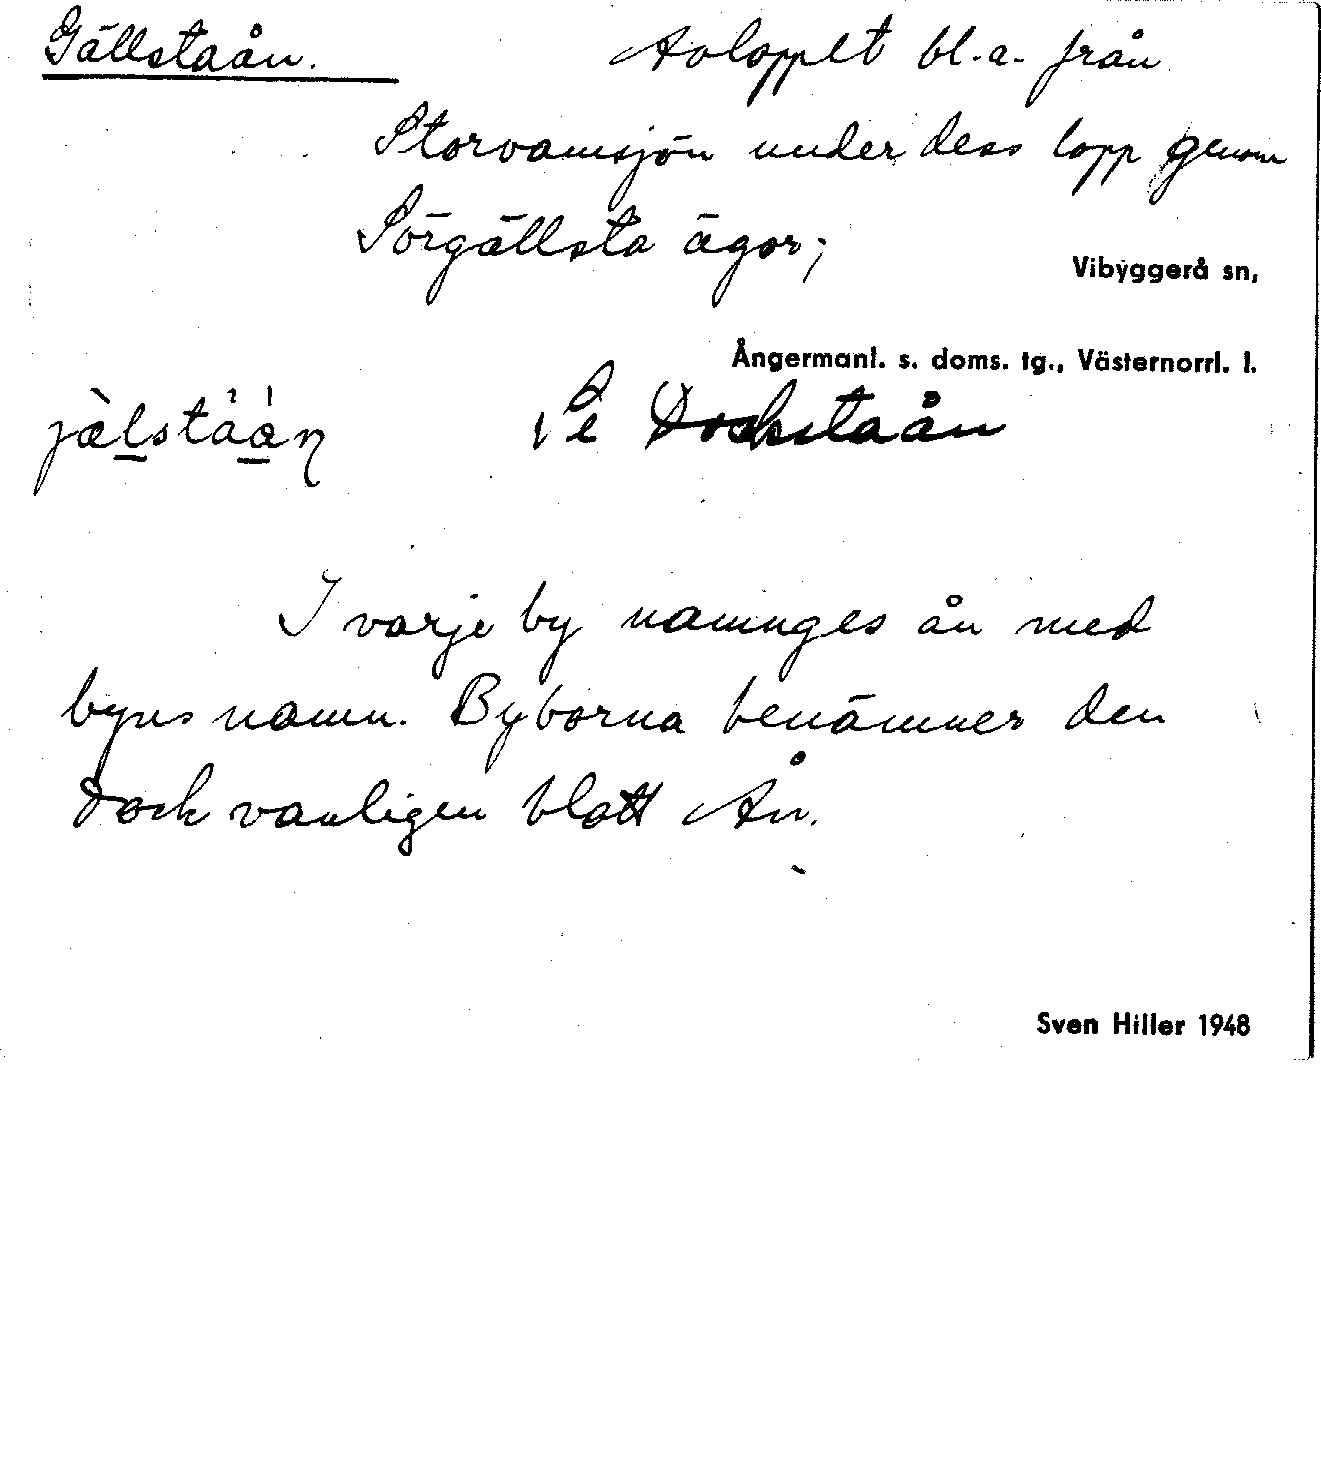 Gällstaån. Avloppet bl.a. från
Storvamsjön under dess lopp genom
Sörgällsta ägor;
Vibyggerå sn,
Ångermanl. s. doms. tg., Västernorrl. l.
Se Dockstaån
I varje by namnges ån med
byns namn. Byborna benämner den
dock vanligen blott Ån.
Sven Hiller 1948